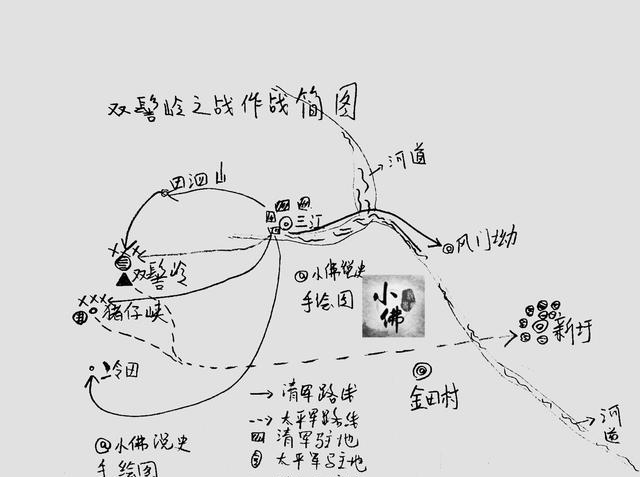 双髻岭之战作战简图
河道
田泗山
三江
风门坳
双髻岭
@小佛说史
手绘图
小佛
猪仔峡
新圩
冷田
金田村
清军路线
太平军路线
清军驻地
太平军驻地
河道
@小佛说史
手绘图